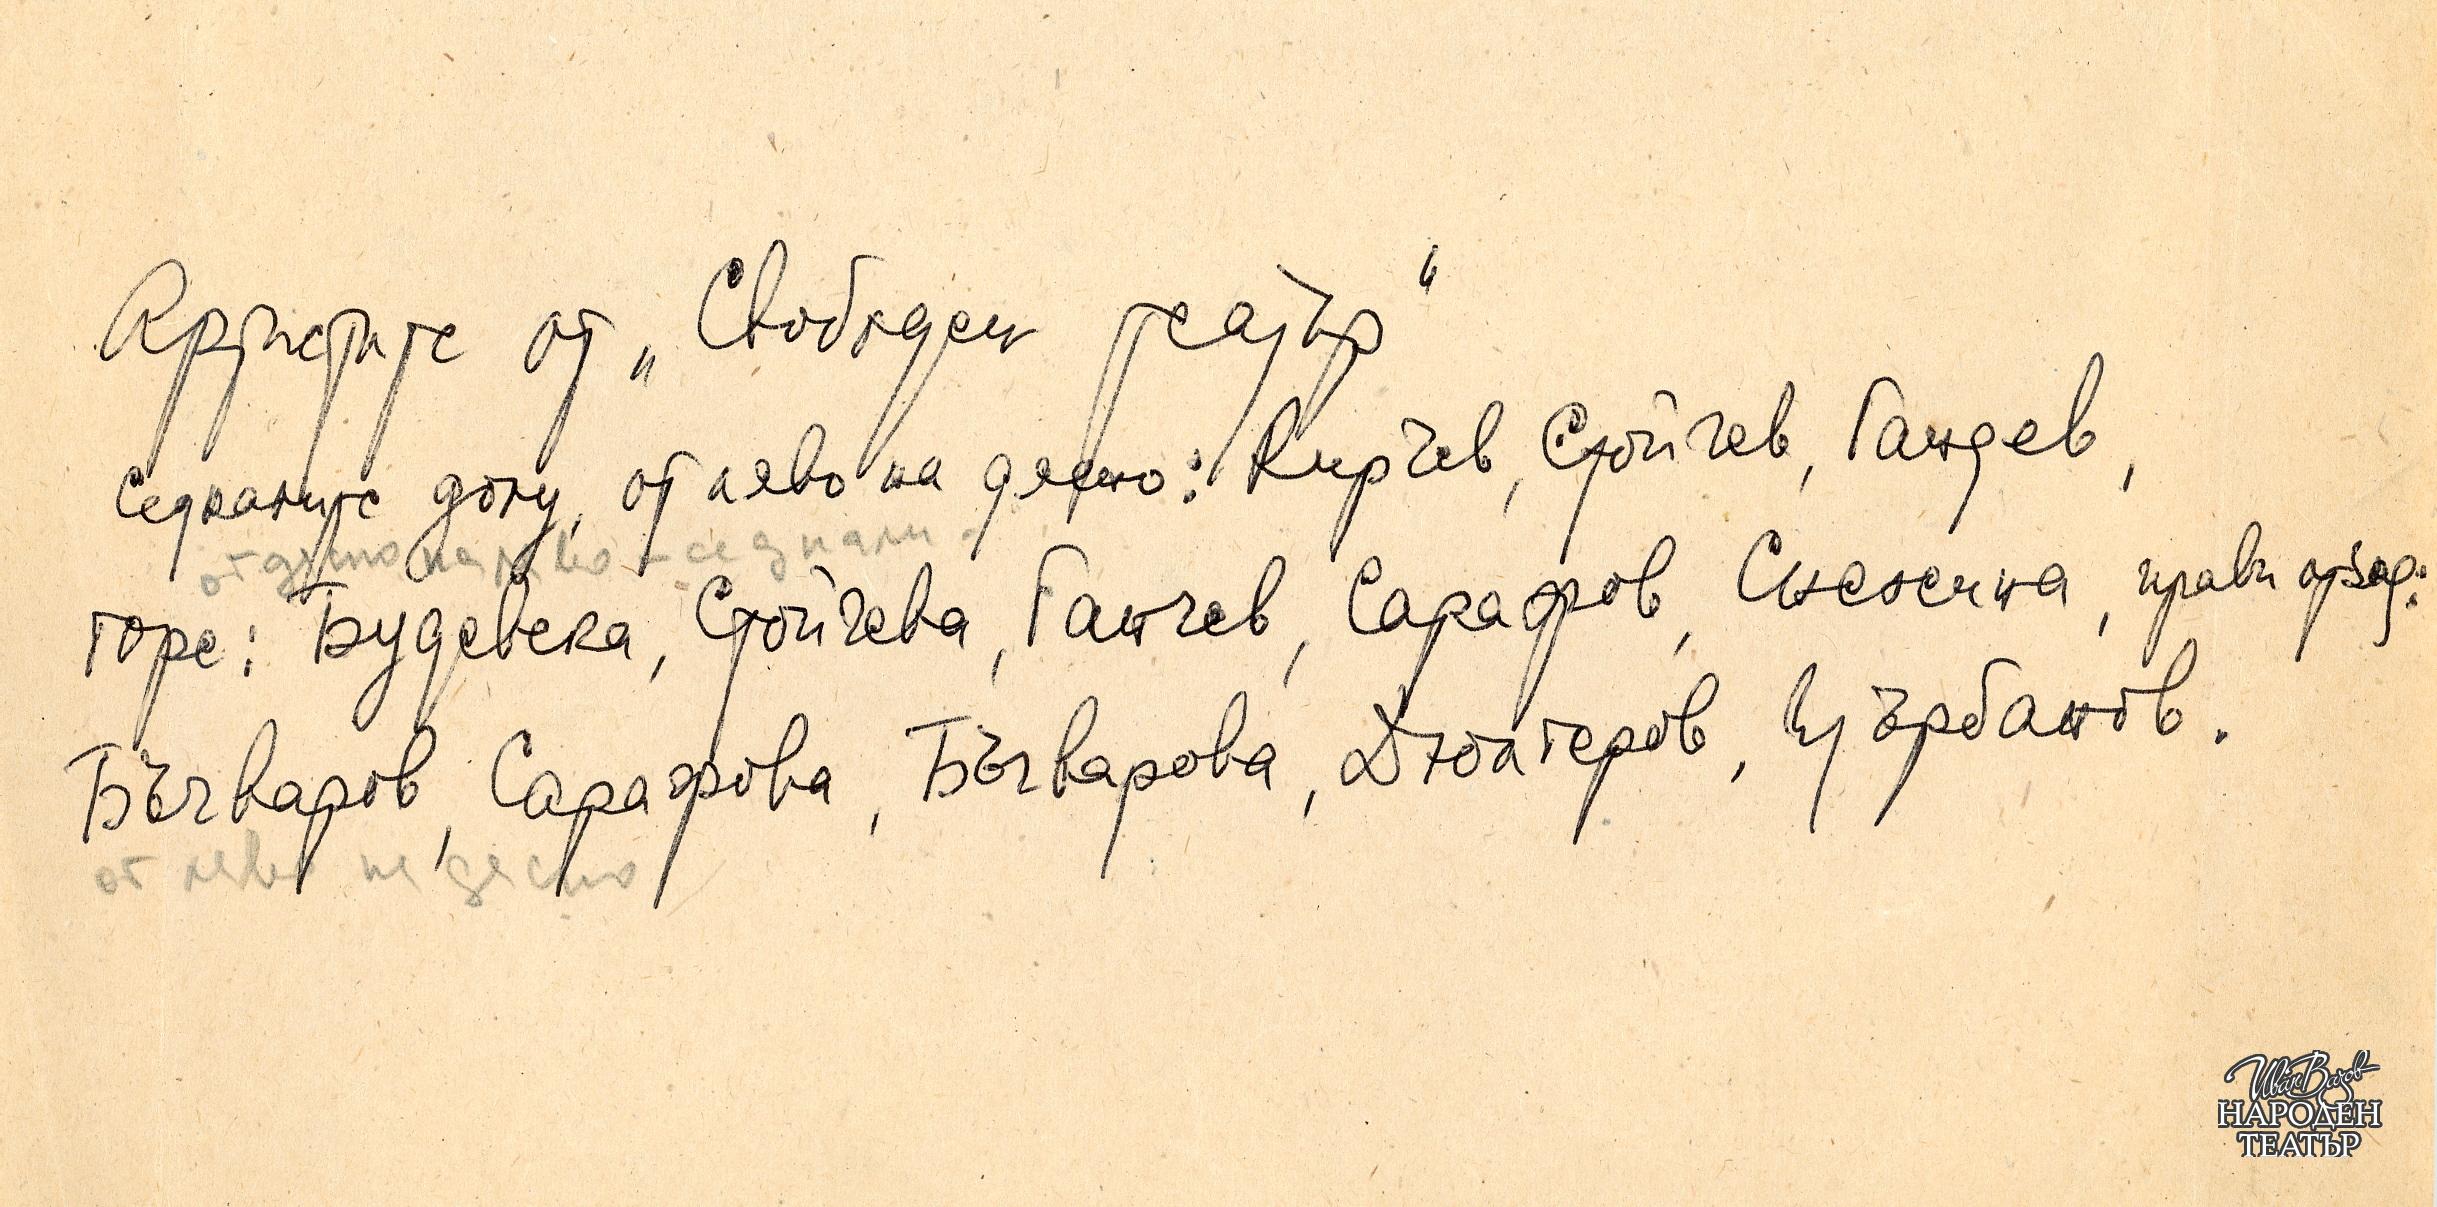 Артистите от „Свободен театър“
Седналите долу, от лево на дясно: Кирчев, Стойчев, Гандев,
от дясно на лево - седнали -
горе: Будевска, Стойчева, Ганчев, Сарафов, Снежина, прави отзад:
Бъчваров, Сарафова, Бъчварова, Дюлгеров, Църбанов.
от лево на дясно
Иван Вазов
НАРОДЕН
ТЕАТЪР